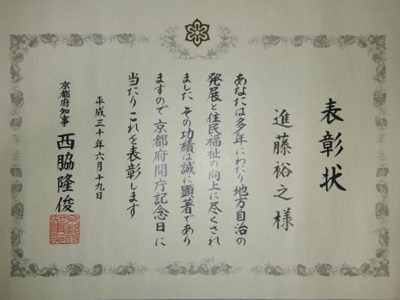 表彰状
進藤裕之様
あなたは多年にわたり地方自治の
発展と住民福祉の向上に尽くされ
ました その功績は誠に顕著であり
ますので 京都府開庁記念日に
当たり これを表彰します
平成三十年六月十九日
京都府知事 西脇隆俊